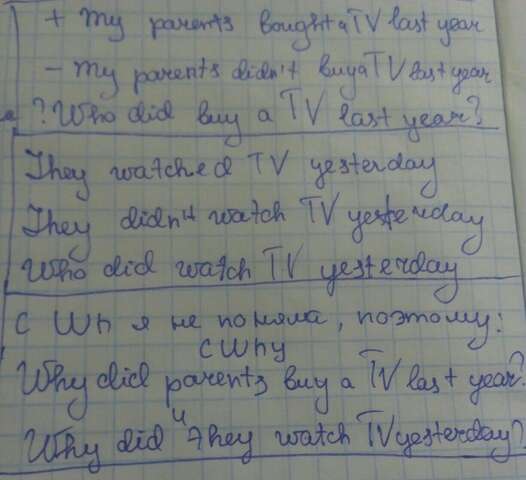 + My parents bought a TV last year
- My parents didn't buy a TV last year
? Who did buy a TV last year?
They watched TV yesterday
They didn't watch TV yesterday
Who did watch TV yesterday
с Wh я не поняла, поэтому:
с Why
Why did parents buy a TV last year?
и
Why did they watch TV yesterday?